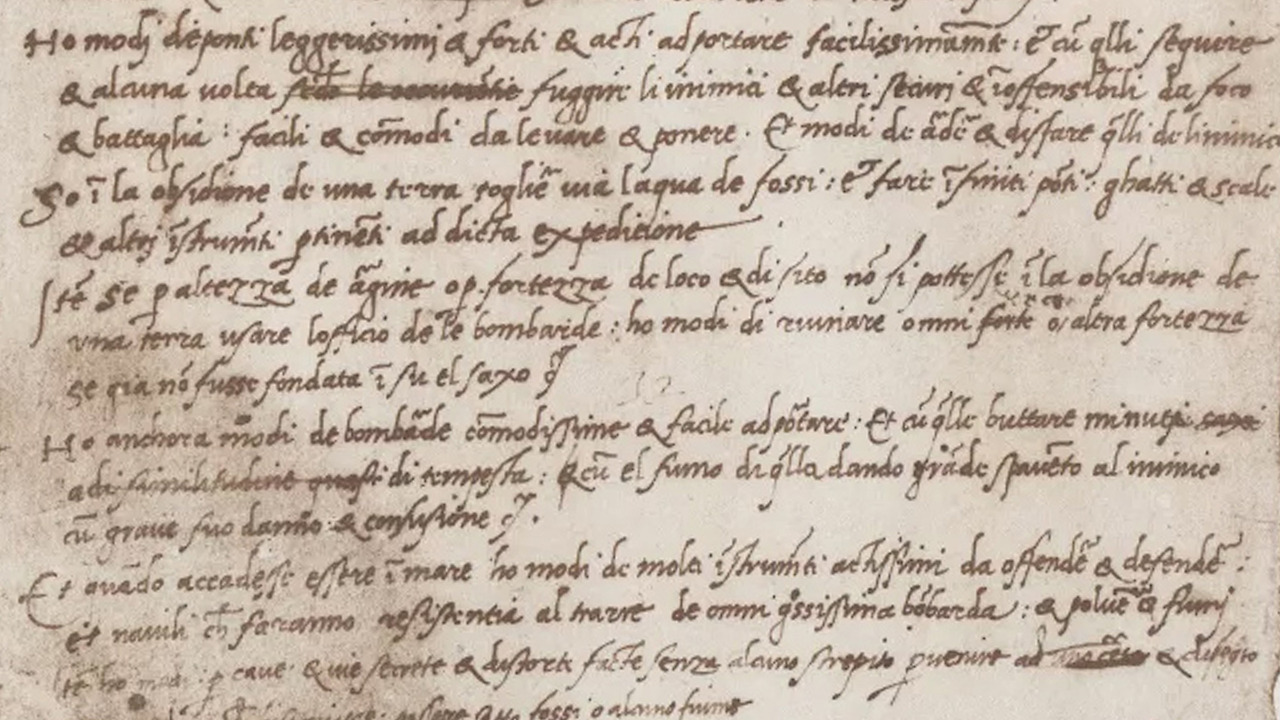 Ho modi de ponti leggerissimi & forti & acti ad portare facilissimamẽte: & cũ q̃lli seguire
& alcuna volta fuggire li inimici & altri securi & ĩoffensibili da foco
& battaglia: facili & cõmodi da levare & ponere. Et modi de ãde & disfare q̃lli de linimic
So ĩ la obsidione de una terra toglie via laqua de fossi: & fare ĩfiniti põti: ghatti & scale
& altri ĩstrumẽti ptinẽti ad dicta expeditione
Itẽ se p altezza de ãgine o p. fortezza de loco & di sito nõ si pottesse ĩ la obsidione de
una terra usare lofficio de le bombarde: ho modi di ruinare omni forte o altra fortezza
se gia nõ fusse fondata ĩ su el saxo
Ho anchora modi de bombãde cõmodissime & facile ad põtare: Et cũ q̃lle buttare minuti saxi
adi similitudine quasi di tempesta: & cũ el fumo di q̃lla dando grãde spavẽto al inimico
cũ grave suo danno & confusione
Et quãdo accadesse essere ĩ mare ho modi de molti ĩstrumẽti actissimi da offendẽ & defendẽ:
et navili ch̃ faranno resistentia al trarre de omni g̃ssissima bõbarda: & polvẽ & fumi
Itẽ ho modi p cave & vie secrete & distorte facte senza alcuno strepito pvenire ad & disegto
passare fossi o alcuno fiume